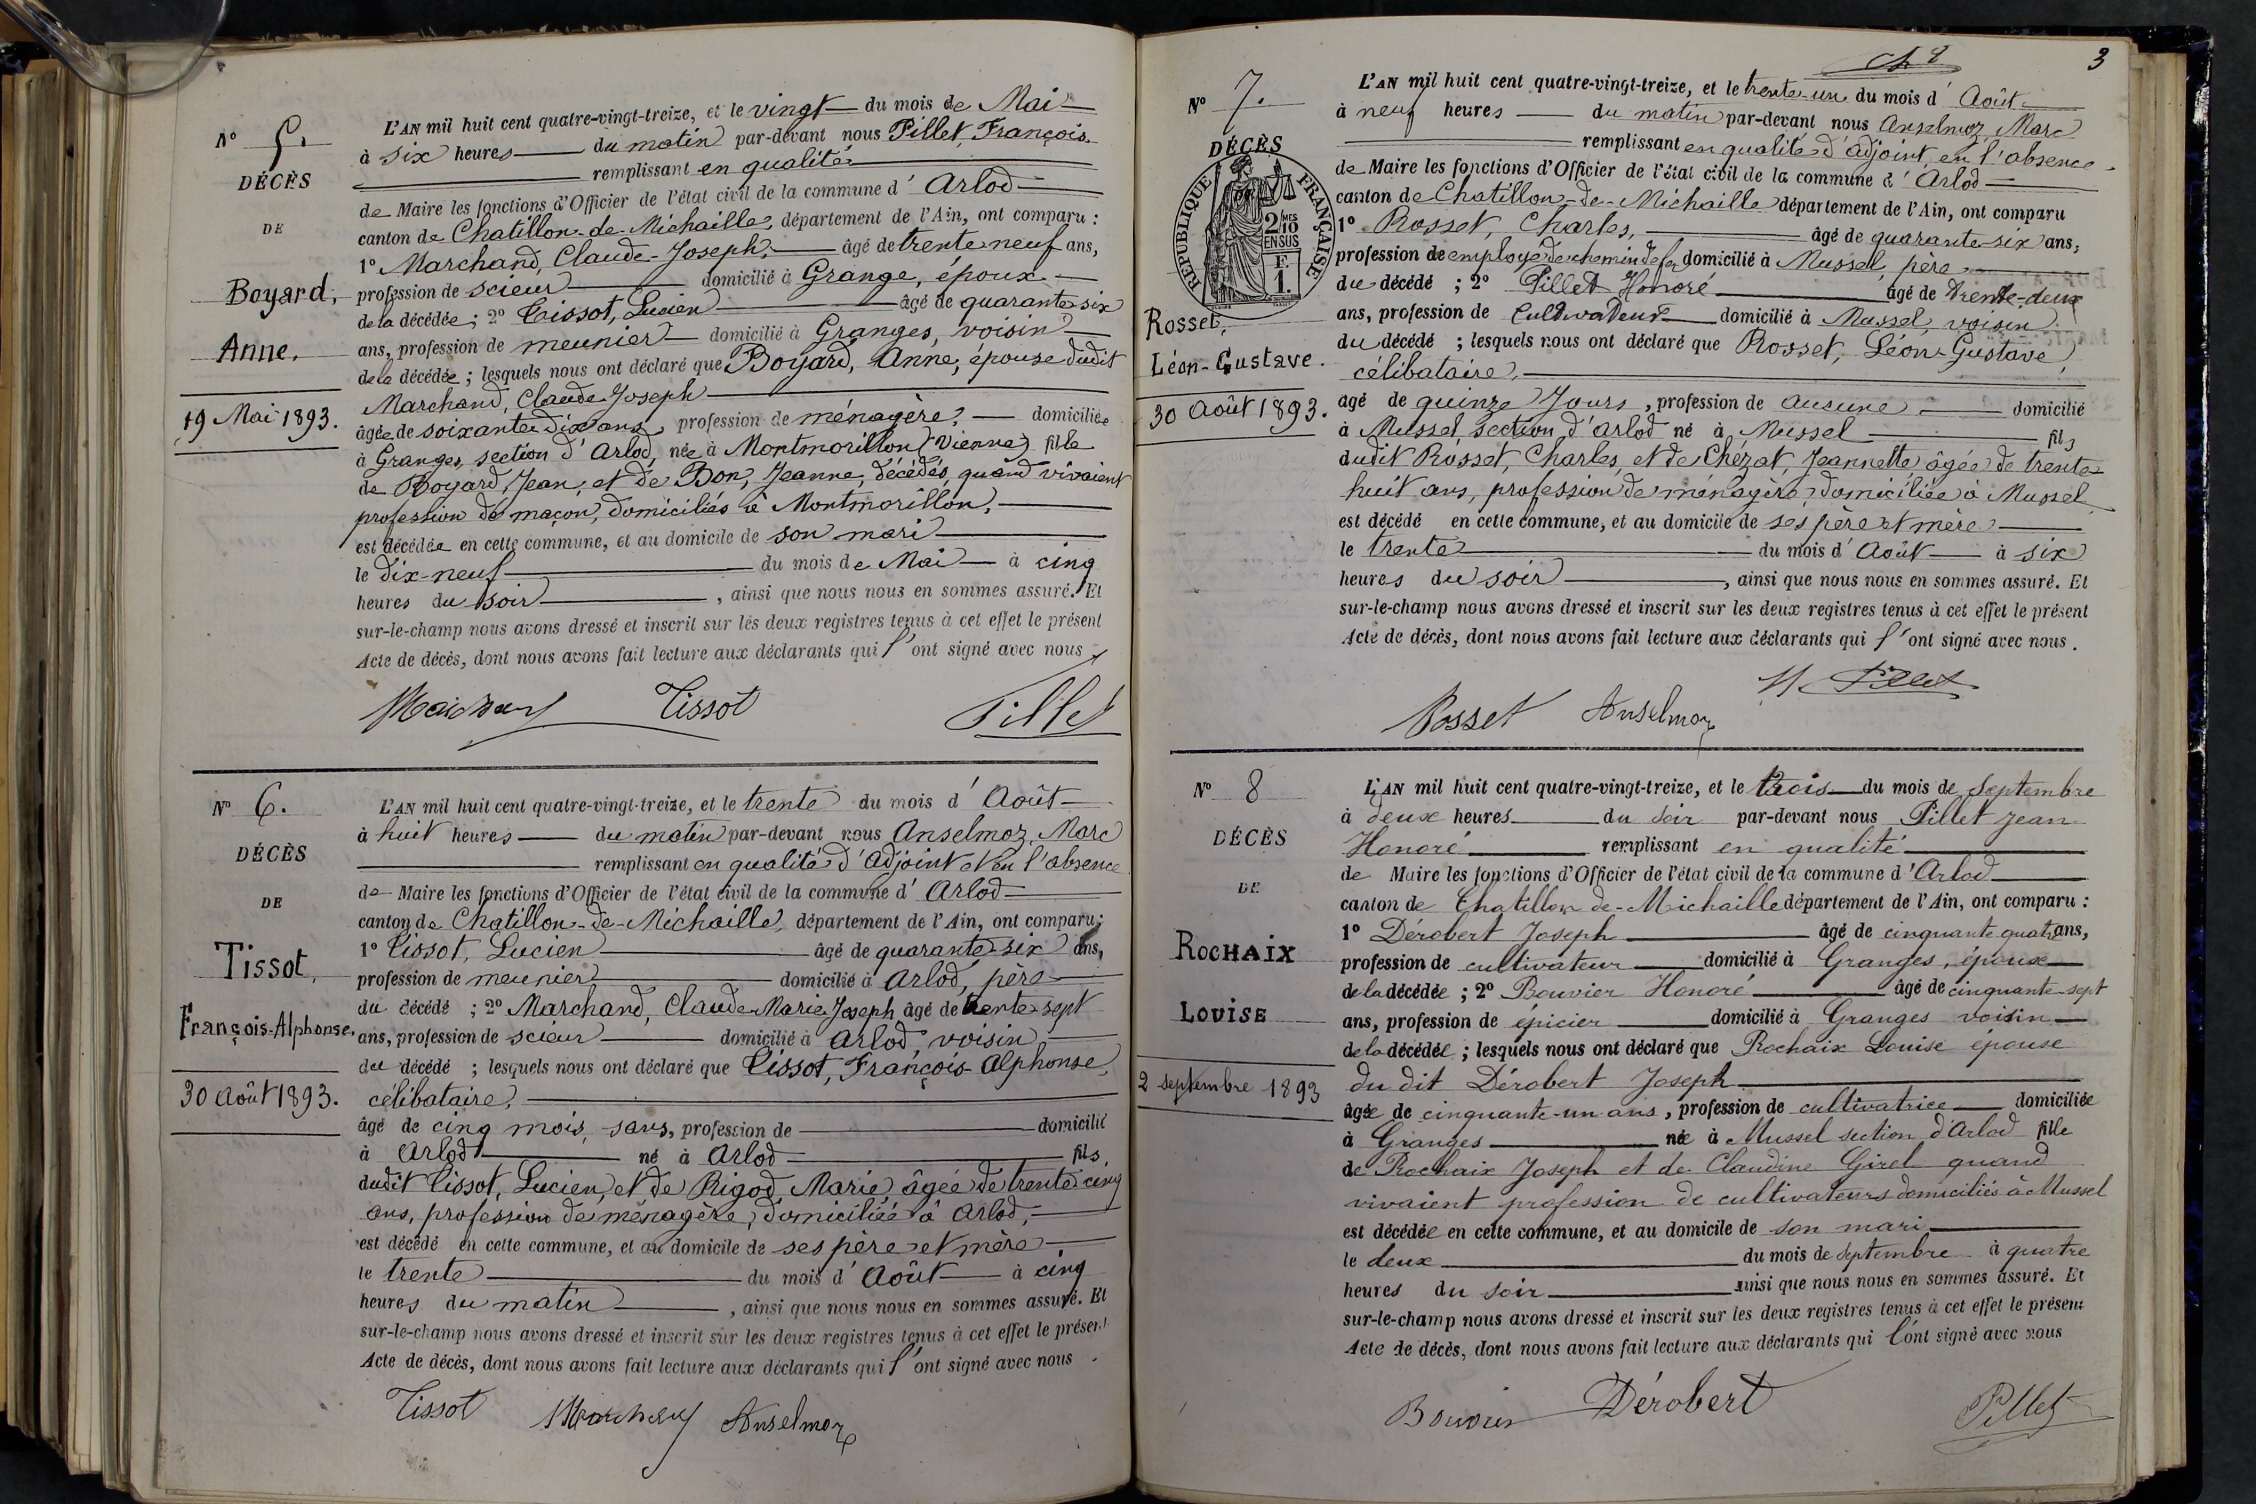 N° 5.
DÉCÈS
DE
Boyard,
Anne.
19 Mai 1893.
L'AN mil huit cent quatre-vingt-treize, et le vingt du mois de Mai
à six heures du matin par-devant nous Pillet, François
remplissant en qualité
de Maire les fonctions d'Officier de l'état civil de la commune d' Arlod
canton de Chatillon-de-Michaille, département de l'Ain, ont comparu :
1° Marchand, Claude-Joseph, âgé de trente-neuf ans,
profession de scieur domicilié à Grange, époux
de la décédée ; 2° Tissot, Lucien âgé de quarante-six
ans, profession de meunier domicilié à Granges, voisin
de la décédée ; lesquels nous ont déclaré que Boyard, Anne, épouse dudit
Marchand, Claude-Joseph
âgée de soixante-dix ans, profession de ménagère, domiciliée
à Granges, section d'Arlod, née à Montmorillon (Vienne) fille
de Boyard, Jean, et de Bon, Jeanne, décédés, quand vivaient
profession de maçon, domiciliés à Montmorillon,
est décédée en cette commune, et au domicile de son mari
le dix-neuf du mois de Mai à cinq
heures du soir, ainsi que nous nous en sommes assuré. Et
sur-le-champ nous avons dressé et inscrit sur les deux registres tenus à cet effet le présent
Acte de décès, dont nous avons fait lecture aux déclarants qui l'ont signé avec nous
Tissot Pillet
N° 6.
DÉCÈS
DE
Tissot,
François-Alphonse,
30 Août 1893.
L'AN mil huit cent quatre-vingt-treize, et le trente du mois d' Août
à huit heures du matin par-devant nous Anselmoz, Marc
remplissant en qualité d'adjoint et en l'absence
de Maire les fonctions d'Officier de l'état civil de la commune d' Arlod
canton de Chatillon-de-Michaille, département de l'Ain, ont comparu :
1° Tissot, Lucien âgé de quarante-six ans,
profession de meunier domicilié à Arlod, père
du décédé ; 2° Marchand, Claude-Marie-Joseph âgé de trente-sept
ans, profession de scieur domicilié à Arlod, voisin
du décédé ; lesquels nous ont déclaré que Tissot, François-Alphonse,
célibataire,
âgé de cinq mois, sans, profession de domicilié
à Arlod né à Arlod fils
dudit Tissot, Lucien, et de Rigod, Marie, âgée de trente-cinq
ans, profession de ménagère, domiciliée à Arlod,
est décédé en cette commune, et au domicile de ses père et mère
le trente du mois d' Août à cinq
heures du matin, ainsi que nous nous en sommes assuré. Et
sur-le-champ nous avons dressé et inscrit sur les deux registres tenus à cet effet le présent
Acte de décès, dont nous avons fait lecture aux déclarants qui l'ont signé avec nous.
Tissot Anselmoz
3
N° 7.
DÉCÈS
RÉPUBLIQUE FRANÇAISE
2 MES
10
EN SUS
F.
1.
Rosset,
Léon-Gustave.
30 Août 1893.
L'AN mil huit cent quatre-vingt-treize, et le trente-un du mois d' Août
à neuf heures du matin par-devant nous Anselmoz, Marc
remplissant en qualité d'adjoint, en l'absence
de Maire les fonctions d'Officier de l'état civil de la commune d' Arlod
canton de Chatillon-de-Michaille département de l'Ain, ont comparu
1° Rosset, Charles, âgé de quarante-six ans,
profession de employé de chemin de fer domicilié à Mussel, père
du décédé ; 2° Pillet Honoré âgé de trente-deux
ans, profession de cultivateur domicilié à Mussel, voisin
du décédé ; lesquels nous ont déclaré que Rosset, Léon-Gustave,
célibataire,
âgé de quinze jours, profession de aucune domicilié
à Mussel, section d'Arlod né à Mussel fils
dudit Rosset, Charles, et de Chézat, Jeannette âgée de trente-
huit ans, profession de ménagère, domiciliée à Mussel
est décédé en cette commune, et au domicile de ses père et mère
le trente du mois d' Août à six
heures du soir, ainsi que nous nous en sommes assuré. Et
sur-le-champ nous avons dressé et inscrit sur les deux registres tenus à cet effet le présent
Acte de décès, dont nous avons fait lecture aux déclarants qui l'ont signé avec nous.
Rosset Anselmoz H Pillet
N° 8
DÉCÈS
DE
ROCHAIX
LOUISE
2 septembre 1893
L'AN mil huit cent quatre-vingt-treize, et le trois du mois de Septembre
à deux heures du soir par-devant nous Pillet Jean
Honoré remplissant en qualité
de Maire les fonctions d'Officier de l'état civil de la commune d'Arlod
canton de Chatillon de-Michaille département de l'Ain, ont comparu :
1° Dérobert Joseph âgé de cinquante-quatre ans,
profession de cultivateur domicilié à Granges, époux
de la décédée ; 2° Bouvier Honoré âgé de cinquante-sept
ans, profession de épicier domicilié à Granges voisin
de la décédée ; lesquels nous ont déclaré que Rochaix Louise épouse
du dit Dérobert Joseph
âgée de cinquante-un ans, profession de cultivatrice domiciliée
à Granges née à Mussel section d'Arlod fille
de Rochaix Joseph et de Claudine Girel quand
vivaient profession de cultivateurs domiciliés à Mussel
est décédée en cette commune, et au domicile de son mari
le deux du mois de Septembre à quatre
heures du soir ainsi que nous nous en sommes assuré. Et
sur-le-champ nous avons dressé et inscrit sur les deux registres tenus à cet effet le présent
Acte de décès, dont nous avons fait lecture aux déclarants qui l'ont signé avec nous
Bouvier Dérobert Pillet